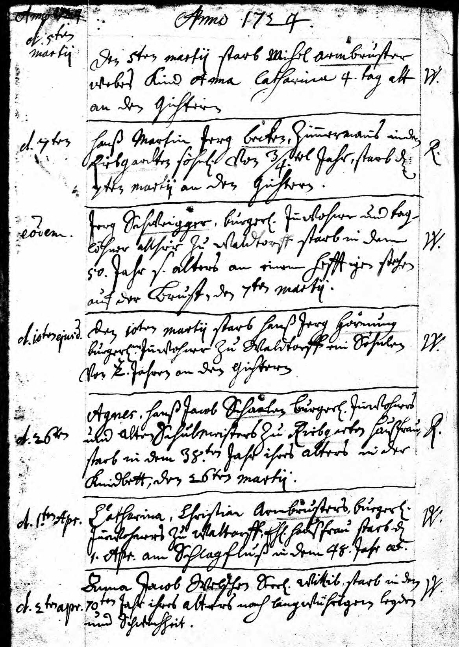 Anno 1724.
Anno 1724
d. 5ten
martij
Den 5ten martij starb Michel Armbruster
webers Kind Anna Catharina 4. tag alt
an den Gichtern
W.
d. 7ten
Hanß Martin Jerg becken, Zimermanns in den
Kirbgarten söhnl. von 3/4tel Jahr, starb d.
7ten martij an den Gichtern.
K.
eodem.
Jerg Schweigger, burgerl. Inwohner und tag-
löhner allhier zu Waldorff starb in dem
50. Jahr s. alters an einem hefftigen stechen
auf der Brust, den 7ten martij.
W.
d. 10ten ejusd.
Den 10ten martij starb Hanß Jerg Hornung
burgerl. Inwohner zu Waldorff ein Söhnlen
von 2. Jahren an den Gichtern
W.
d. 26ten
Agnes, Hanß Jacob burgerl. Inwohners
und alten Schulmeisters zu Kirbgarten Haußfrau
starb in dem 38.ten Jahr ihres alters in der
Kindbett, den 26ten martij.
K.
d. 1ten Apr.
Catharina, Christian Armbrusters, burgerl.
Inwohners zu Waltorff. Ehl. haußfrau starb d.
1. Apr. am Schlagfluß in dem 48. Jahr aet.
W.
d. 2ten apr.
Anna Jacob Seel. Wittib. starb in dem
70ten Jahr ihres alters nach langwührigem leyden
und Schwachheit.
W